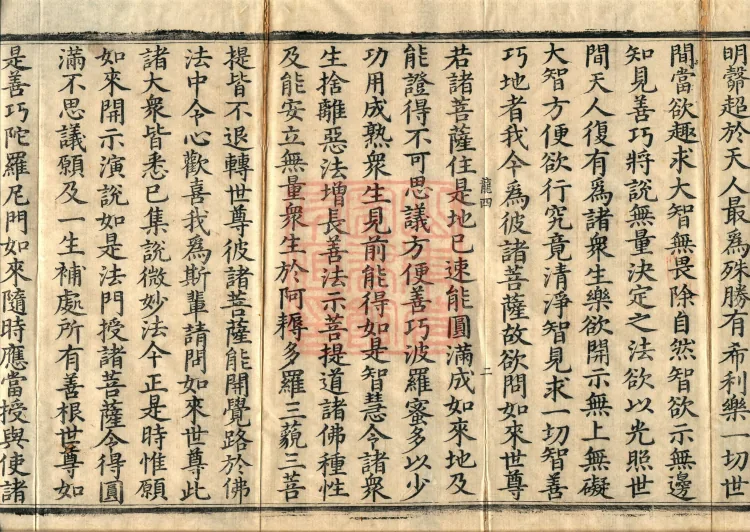 明超於天人最爲殊勝有希利樂一切世
間當欲趣求大智無畏除自然智欲示無邊
知見善巧將說無量決定之法欲以光照世
間天人復有爲諸衆生樂欲開示無上無礙
大智方便欲行究竟清淨智見求一切智善
巧地者我今爲彼諸菩薩故欲問如來世尊
龍四 二
若諸菩薩住是地已速能圓滿成如來地及
能證得不可思議方便善巧波羅蜜多以少
功用成熟衆生見前能得如是智慧令諸衆
生捨離惡法增長善法示菩提道諸佛種性
及能安立無量衆生於阿耨多羅三藐三菩
提皆不退轉世尊彼諸菩薩能開覺路於佛
法中令心歡喜我爲斯輩請問如來世尊此
諸大衆皆悉已集說微妙法今正是時惟願
如來開示演說如是法門授諸菩薩令得圓
滿不思議願及一生補處所有善根世尊如
是善巧陀羅尼門如來隨時應當授與使諸